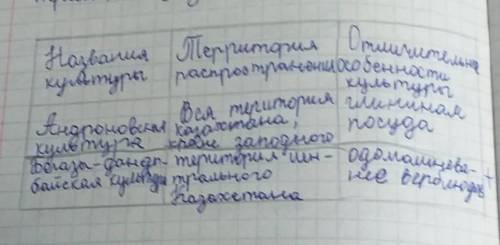 Названия
культуры
Территория
распространения
Отличительне
особенности
культуры
Андроновская
культура
Вся територия
казахстана,
кроме западного
глининая
посуда
Бегазы-данды-
байская культура
територия цен-
трального
Казахстана
одомашнева-
ние верблюдов